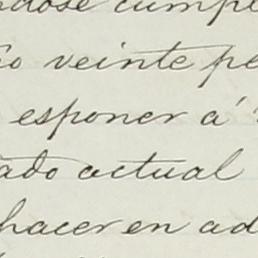 ndose cumpl
io veinte pe
esponer á
ado actual
hacer en ad